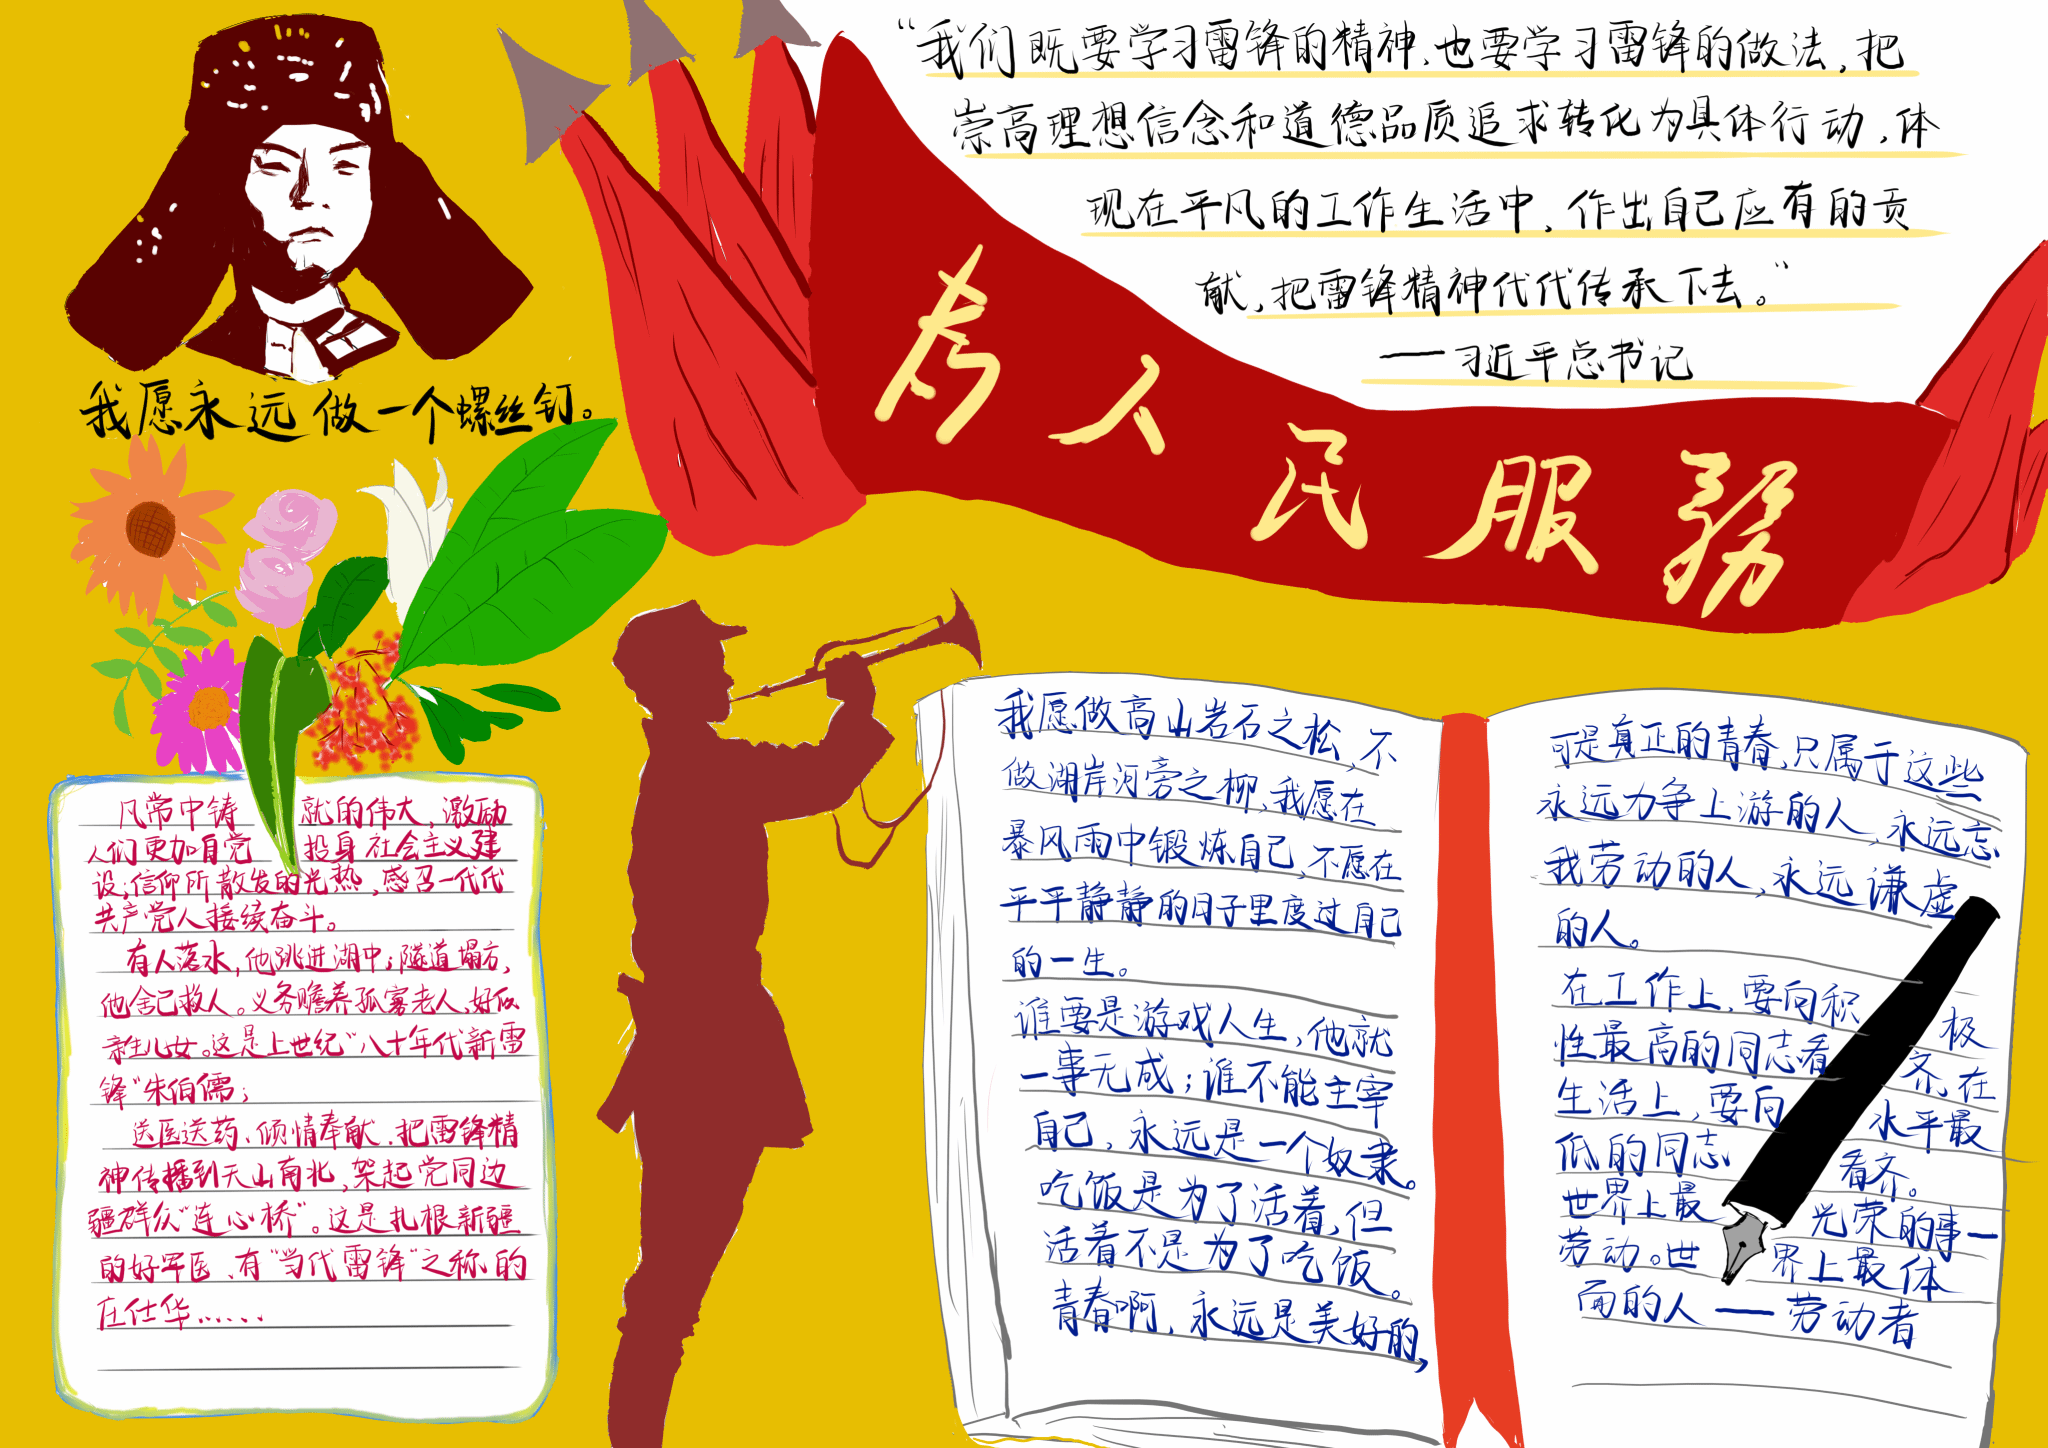 “我们既要学习雷锋的精神,也要学习雷锋的做法,把
崇高理想信念和道德品质追求转化为具体行动,体
现在平凡的工作生活中,作出自己应有的贡
献,把雷锋精神代代传承下去。”
——习近平总书记
为人民服務
我愿永远做一个螺丝钉。
凡常中铸就的伟大,激励
人们更加自觉投身社会主义建
设;信仰所散发的光热,感召一代代
共产党人接续奋斗。
有人落水,他跳进湖中;隧道塌方,
他舍己救人。义务赡养孤寡老人,好似
亲生儿女。这是上世纪“八十年代新雷
锋”朱伯儒;
送医送药、倾情奉献、把雷锋精
神传播到天山南北,架起党同边
疆群众“连心桥”。这是扎根新疆
的好军医、有“当代雷锋”之称的
庄仕华......
我愿做高山岩石之松,不
做湖岸河旁之柳,我愿在
暴风雨中锻炼自己,不愿在
平平静静的日子里度过自己
的一生。
谁要是游戏人生,他就
一事无成;谁不能主宰
自己,永远是一个奴隶。
吃饭是为了活着,但
活着不是为了吃饭。
青春啊,永远是美好的,
可是真正的青春,只属于这些
永远力争上游的人,永远忘
我劳动的人,永远谦虚
的人。
在工作上,要向积极
性最高的同志看齐,在
生活上,要向水平最
低的同志看齐。
世界上最光荣的事一
劳动。世界上最体
面的人——劳动者